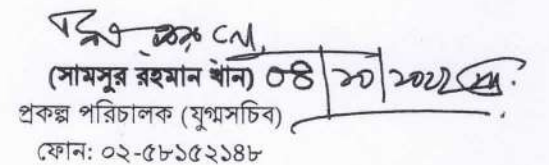 (সামসুর রহমান খান) 08/10/2022
প্রকল্প পরিচালক (যুগ্মসচিব)
ফোন: ০২-৫৮১৫২১৪৮